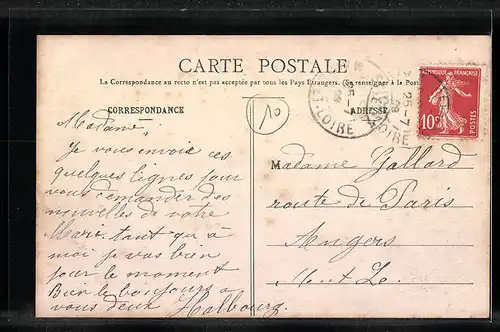 CARTE POSTALE
La Correspondance au recto n'est pas acceptée par tous les Pays Etrangers. (Se renseigner à la Poste
CORRESPONDANCE
ADRESSE
10
ET-LOIRE
25-7
08
LOIRE
REPUBLIQUE FRANÇAISE
10c
POSTES
Madame,
Je vous envoie ces
quelques lignes pour
vous demander des
nouvelles de votre
Mari. tant qu'à
moi je vas bien
pour le moment
Bien le bonjour a
vous deux Halbourg.
Madame Gallard
route de Paris
Angers